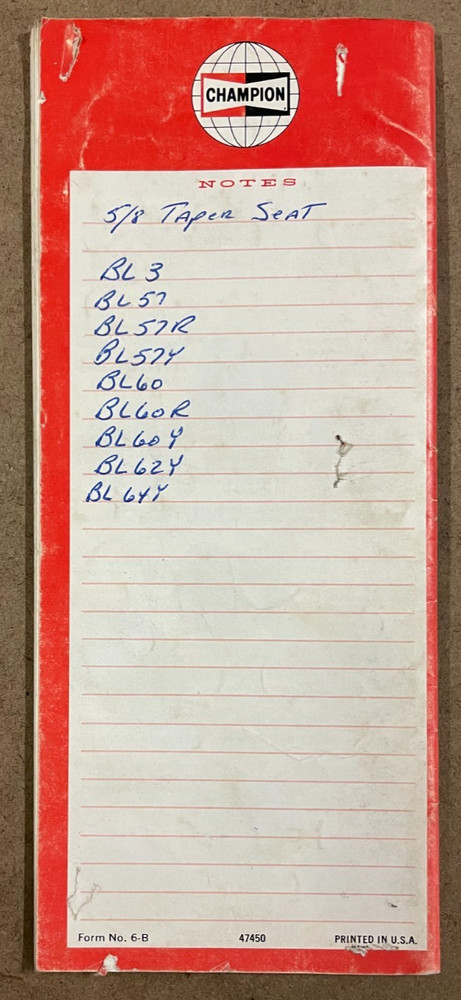 CHAMPION
NOTES
5/8 TAPER SEAT
BL 3
BL 57
BL 57R
BL 57Y
BL60
BL60R
BL60Y
BL62Y
BL 64Y
Form No. 6-B 47450 PRINTED IN U.S.A.